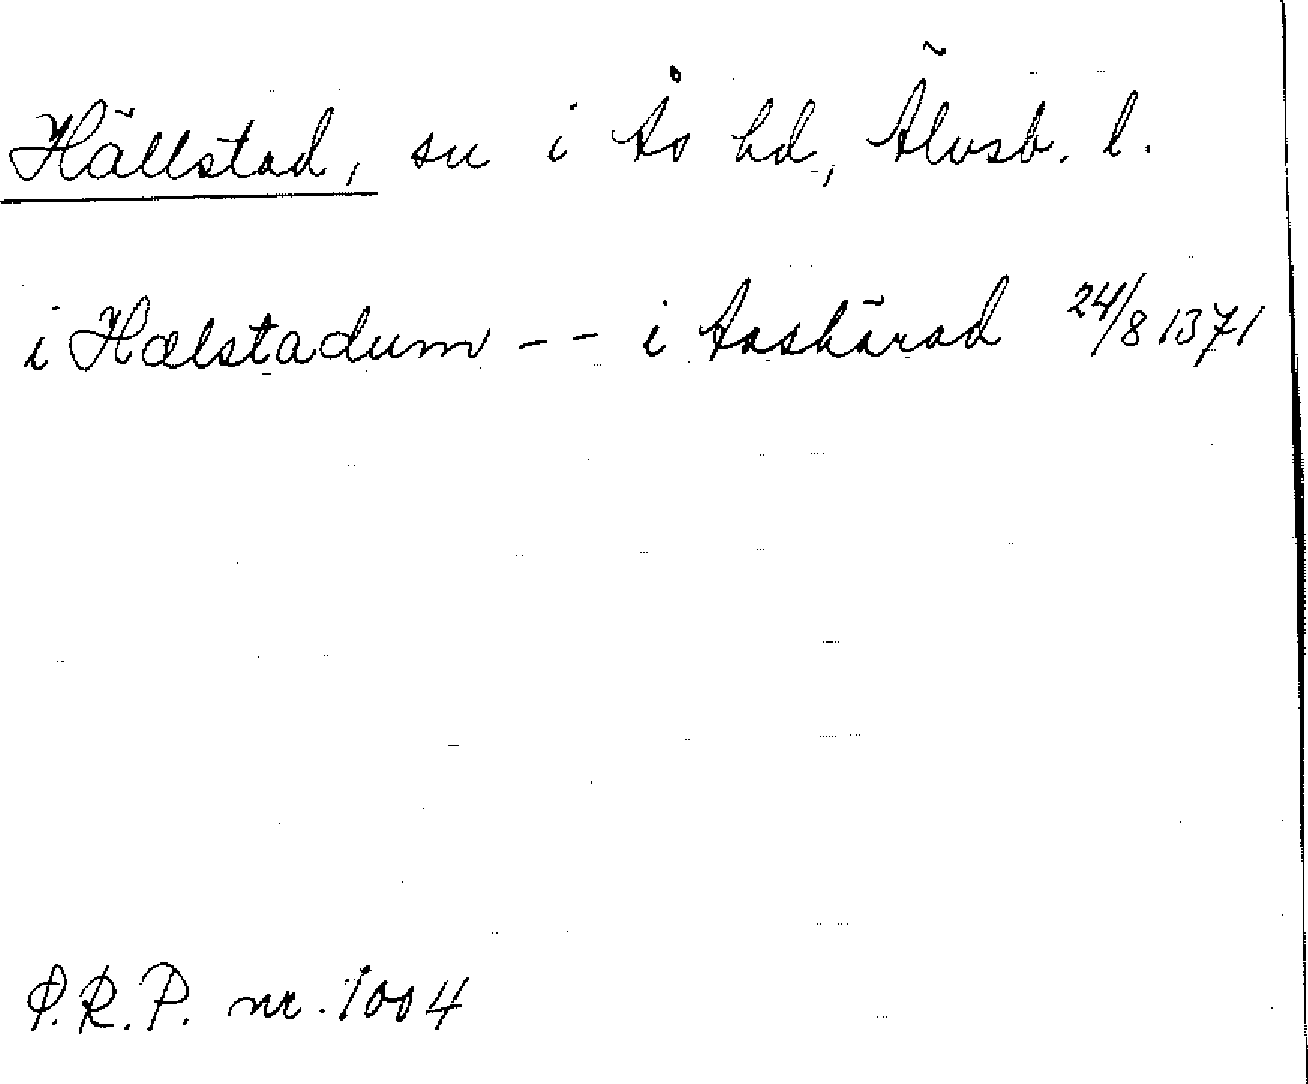 Hällstad, sn i Ås hd, Älvsb. l.
i Hælstadum -- i Aashärad 24/8 1371
P.R.P. nr. 1004